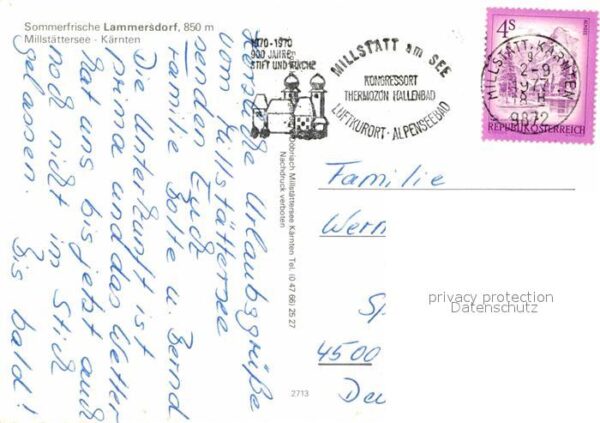 Sommerfrische Lammersdorf, 850 m
Millstättersee - Kärnten
1070-1970
900 JAHRE
STIFT UND KIRCHE
MILLSTATT am SEE
KONGRESSORT
THERMOZON HALLENBAD
LUFTKURORT · ALPENSEEBAD
4S
REPUBLIK ÖSTERREICH
MILLSTATT, KÄRNTEN
9872
Herzliche Urlaubsgrüße
vom Millstättersee
senden Euch
Familie Bolte u. Bernd
Die Unterkunft ist
prima und das Wetter
hat uns bis jetzt auch
noch nicht im Stich
gelassen. Bis bald!
Millstättersee Kärnten Tel. (0 47 66) 25 27
Nachdruck verboten
Familie
Wern
Sp.
4500
privacy protection
Datenschutz
2713